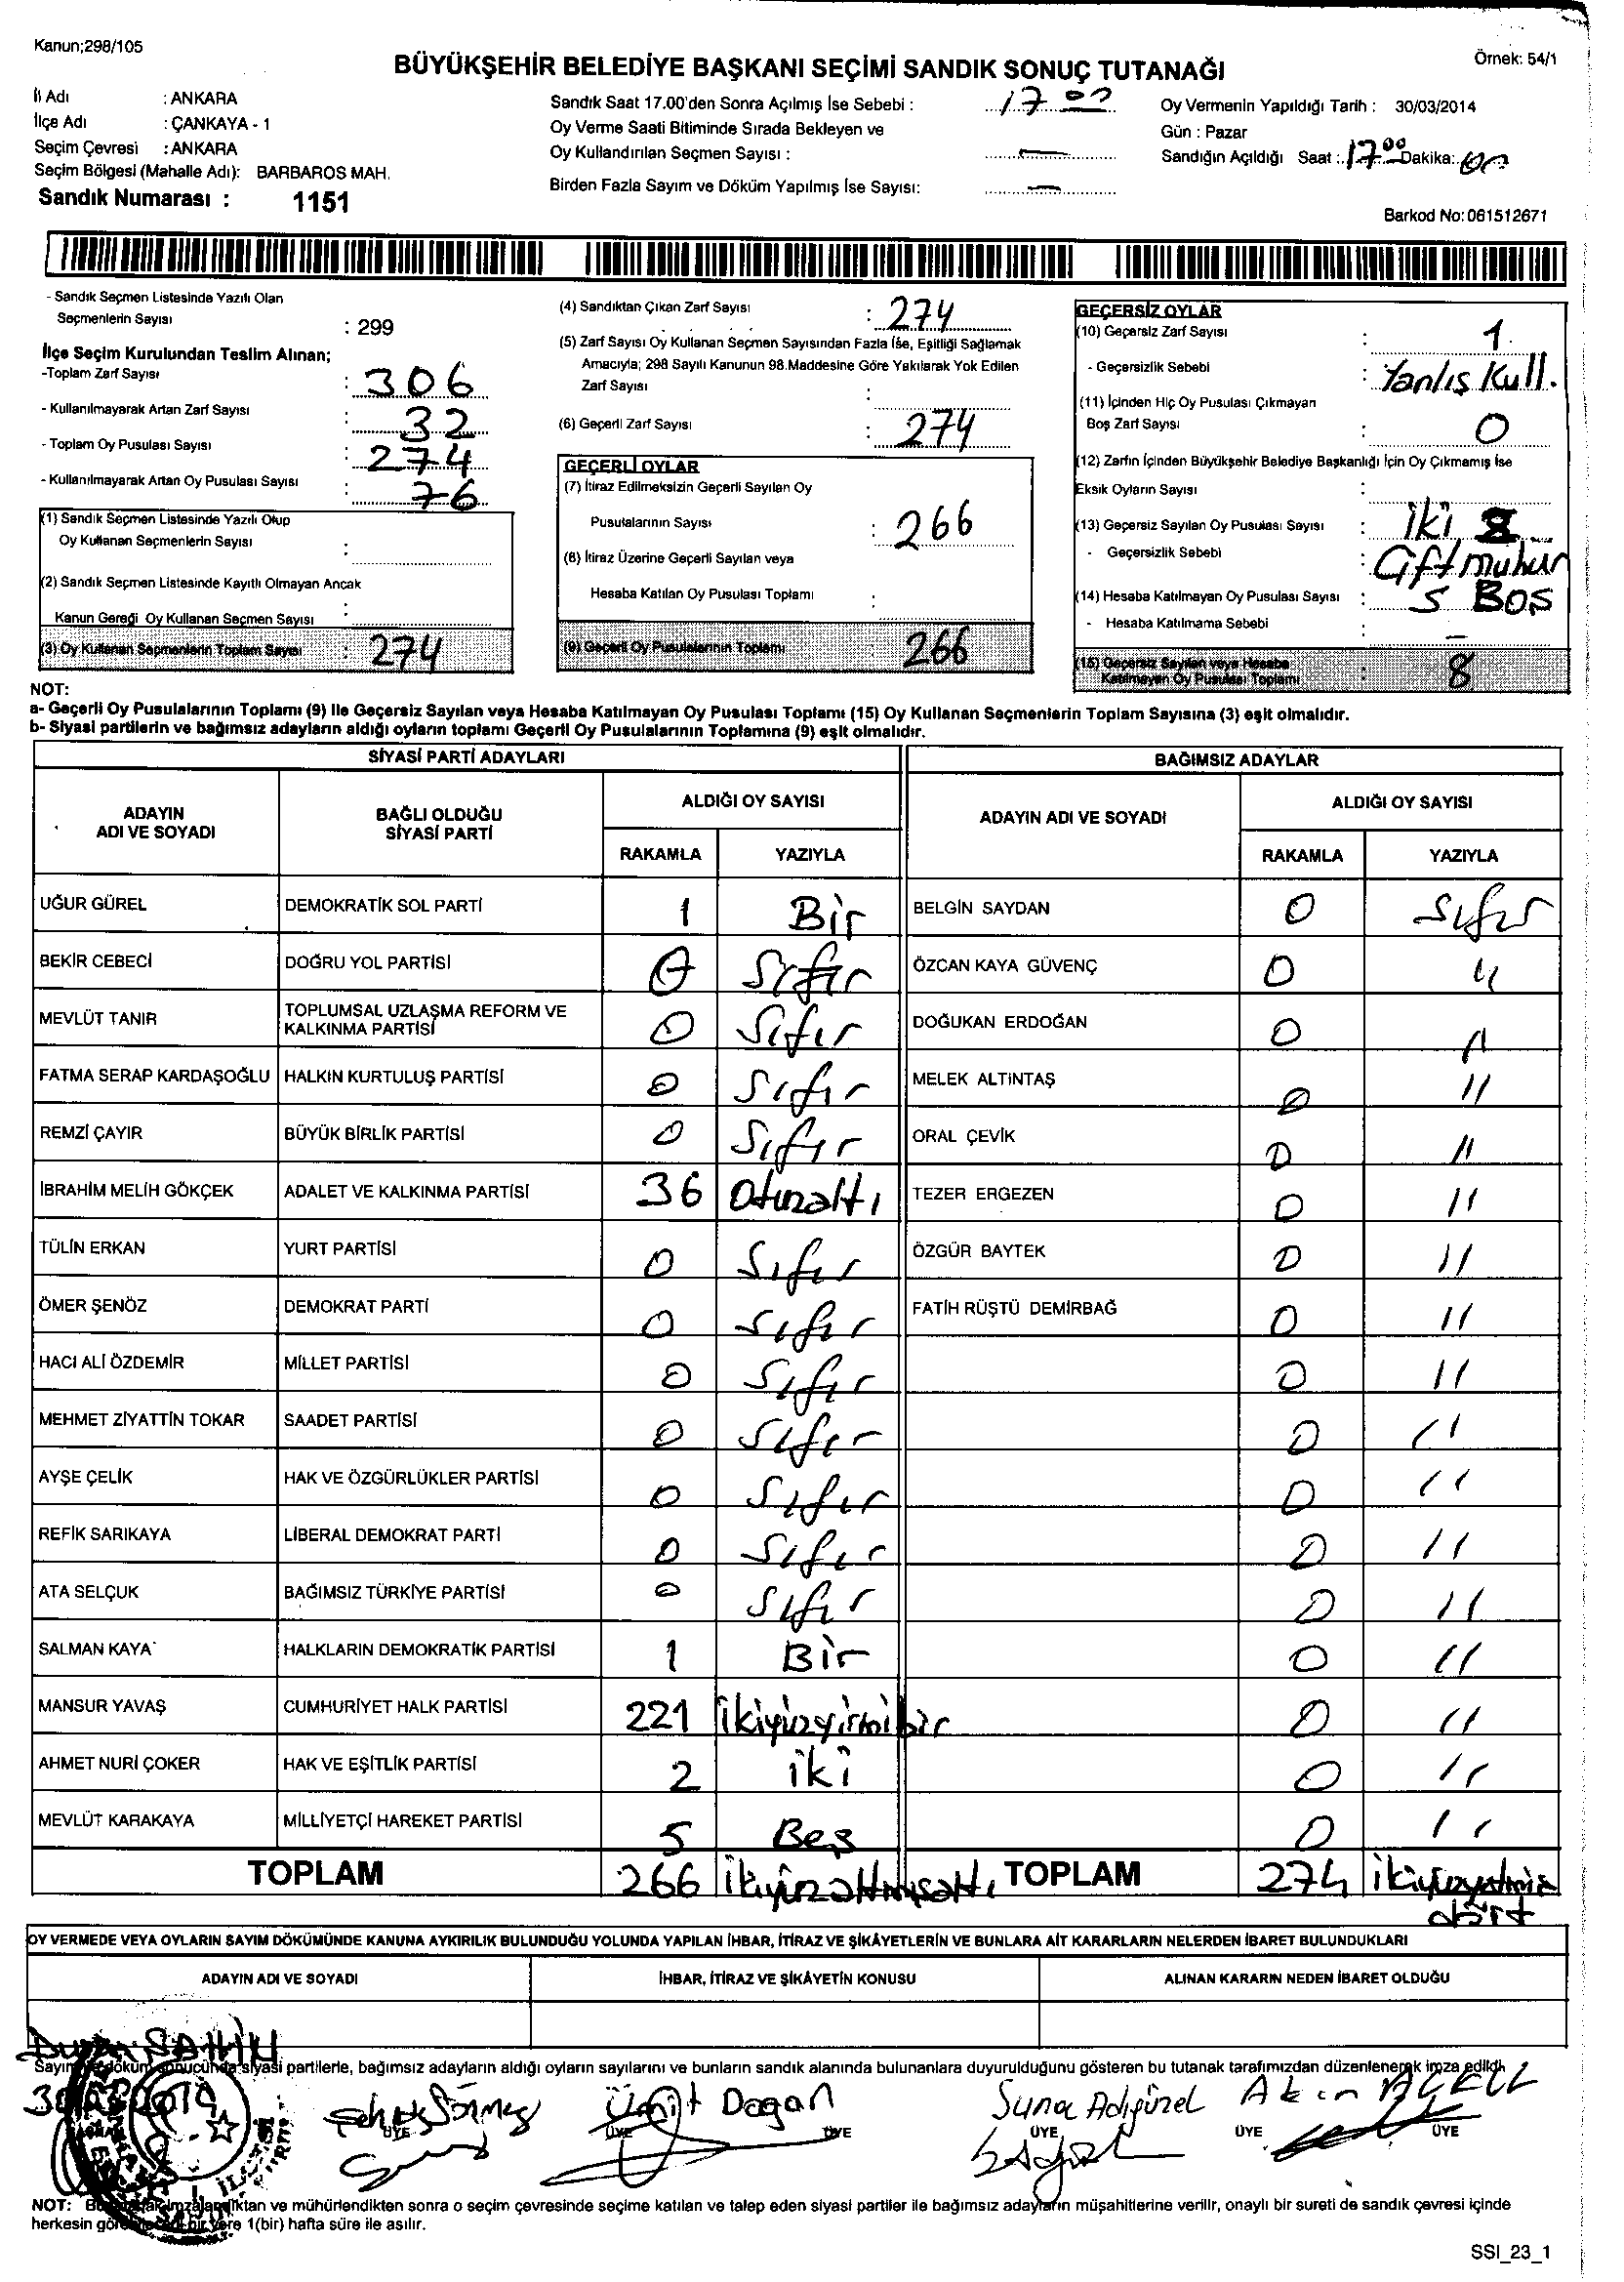 Kanun;298/105
Örnek: 54/1
BÜYÜKŞEHİR BELEDİYE BAŞKANI SEÇİMİ SANDIK SONUÇ TUTANAĞI
İl Adı : ANKARA
İlçe Adı : ÇANKAYA - 1
Seçim Çevresi : ANKARA
Seçim Bölgesi (Mahalle Adı): BARBAROS MAH.
Sandık Numarası : 1151
Sandık Saat 17.00'den Sonra Açılmış İse Sebebi : 17 00
Oy Verme Saati Bitiminde Sırada Bekleyen ve
Oy Kullandırılan Seçmen Sayısı : —
Birden Fazla Sayım ve Döküm Yapılmış İse Sayısı: —
Oy Vermenin Yapıldığı Tarih : 30/03/2014
Gün : Pazar
Sandığın Açıldığı Saat : 17 00 Dakika: 00
Barkod No: 061512671
- Sandık Seçmen Listesinde Yazılı Olan
Seçmenlerin Sayısı : 299
İlçe Seçim Kurulundan Teslim Alınan;
-Toplam Zarf Sayısı : 306
- Kullanılmayarak Artan Zarf Sayısı : 32
- Toplam Oy Pusulası Sayısı : 274
- Kullanılmayarak Artan Oy Pusulası Sayısı : 76
(1) Sandık Seçmen Listesinde Yazılı Olup
Oy Kullanan Seçmenlerin Sayısı :
(2) Sandık Seçmen Listesinde Kayıtlı Olmayan Ancak
Kanun Gereği Oy Kullanan Seçmen Sayısı :
(3) Oy Kullanan Seçmenlerin Toplam Sayısı : 274
(4) Sandıktan Çıkan Zarf Sayısı : 274
(5) Zarf Sayısı Oy Kullanan Seçmen Sayısından Fazla İse, Eşitliği Sağlamak
Amacıyla; 298 Sayılı Kanunun 98.Maddesine Göre Yakılarak Yok Edilen
Zarf Sayısı :
(6) Geçerli Zarf Sayısı : 274
GEÇERLİ OYLAR
(7) İtiraz Edilmeksizin Geçerli Sayılan Oy
Pusulalarının Sayısı : 266
(8) İtiraz Üzerine Geçerli Sayılan veya
Hesaba Katılan Oy Pusulası Toplamı :
(9) Geçerli Oy Pusulalarının Toplamı : 266
GEÇERSİZ OYLAR
(10) Geçersiz Zarf Sayısı : 1
- Geçersizlik Sebebi : Yanlış Kull.
(11) İçinden Hiç Oy Pusulası Çıkmayan
Boş Zarf Sayısı : 0
(12) Zarfın İçinden Büyükşehir Belediye Başkanlığı İçin Oy Çıkmamış İse
Eksik Oyların Sayısı :
(13) Geçersiz Sayılan Oy Pusulası Sayısı : iki
- Geçersizlik Sebebi : Çift mühür
(14) Hesaba Katılmayan Oy Pusulası Sayısı : 5 Boş
- Hesaba Katılmama Sebebi : —
(15) Geçersiz Sayılan veya Hesaba
Katılmayan Oy Pusulası Toplamı : 8
NOT:
a- Geçerli Oy Pusulalarının Toplamı (9) İle Geçersiz Sayılan veya Hesaba Katılmayan Oy Pusulası Toplamı (15) Oy Kullanan Seçmenlerin Toplam Sayısına (3) eşit olmalıdır.
b- Siyasi partilerin ve bağımsız adayların aldığı oyların toplamı Geçerli Oy Pusulalarının Toplamına (9) eşit olmalıdır.
SİYASİ PARTİ ADAYLARI BAĞIMSIZ ADAYLAR
ADAYIN ADI VE SOYADI BAĞLI OLDUĞU SİYASİ PARTİ ALDIĞI OY SAYISI ADAYIN ADI VE SOYADI ALDIĞI OY SAYISI
RAKAMLA YAZIYLA RAKAMLA YAZIYLA
UĞUR GÜREL DEMOKRATİK SOL PARTİ 1 Bir BELGİN SAYDAN 0 Sıfır
BEKİR CEBECİ DOĞRU YOL PARTİSİ 0 Sıfır ÖZCAN KAYA GÜVENÇ 0 "
MEVLÜT TANIR TOPLUMSAL UZLAŞMA REFORM VE KALKINMA PARTİSİ 0 Sıfır DOĞUKAN ERDOĞAN 0 "
FATMA SERAP KARDAŞOĞLU HALKIN KURTULUŞ PARTİSİ 0 Sıfır MELEK ALTINTAŞ 0 "
REMZİ ÇAYIR BÜYÜK BİRLİK PARTİSİ 0 Sıfır ORAL ÇEVİK 0 "
İBRAHİM MELİH GÖKÇEK ADALET VE KALKINMA PARTİSİ 36 Otuzaltı TEZER ERGEZEN 0 "
TÜLİN ERKAN YURT PARTİSİ 0 Sıfır ÖZGÜR BAYTEK 0 "
ÖMER ŞENÖZ DEMOKRAT PARTİ 0 Sıfır FATİH RÜŞTÜ DEMİRBAĞ 0 "
HACI ALİ ÖZDEMİR MİLLET PARTİSİ 0 Sıfır 0 "
MEHMET ZİYATTİN TOKAR SAADET PARTİSİ 0 Sıfır 0 "
AYŞE ÇELİK HAK VE ÖZGÜRLÜKLER PARTİSİ 0 Sıfır 0 "
REFİK SARIKAYA LİBERAL DEMOKRAT PARTİ 0 Sıfır 0 "
ATA SELÇUK BAĞIMSIZ TÜRKİYE PARTİSİ 0 Sıfır 0 "
SALMAN KAYA HALKLARIN DEMOKRATİK PARTİSİ 1 Bir 0 "
MANSUR YAVAŞ CUMHURİYET HALK PARTİSİ 221 ikiyüzyirmibir 0 "
AHMET NURİ ÇOKER HAK VE EŞİTLİK PARTİSİ 2 iki 0 "
MEVLÜT KARAKAYA MİLLİYETÇİ HAREKET PARTİSİ 5 Beş 0 "
TOPLAM 266 ikiyüzaltmışaltı TOPLAM 274 ikiyüzyetmiş
dört
OY VERMEDE VEYA OYLARIN SAYIM DÖKÜMÜNDE KANUNA AYKIRILIK BULUNDUĞU YOLUNDA YAPILAN İHBAR, İTİRAZ VE ŞİKÂYETLERİN VE BUNLARA AİT KARARLARIN NELERDEN İBARET BULUNDUKLARI
ADAYIN ADI VE SOYADI İHBAR, İTİRAZ VE ŞİKÂYETİN KONUSU ALINAN KARARIN NEDEN İBARET OLDUĞU
ŞAHİN
Sayım ve döküm sonucunda siyasi partilerle, bağımsız adayların aldığı oyların sayılarını ve bunların sandık alanında bulunanlara duyurulduğunu gösteren bu tutanak tarafımızdan düzenlenerek imza edildi.
Sönmez Ümit Dogan Suna Adıgüzel Akın
ÜYE ÜYE ÜYE ÜYE ÜYE ÜYE
NOT: Bu tutanak imzalandıktan ve mühürlendikten sonra o seçim çevresinde seçime katılan ve talep eden siyasi partiler ile bağımsız adayların müşahitlerine verilir, onaylı bir sureti de sandık çevresi içinde
herkesin görebileceği bir yere 1(bir) hafta süre ile asılır.
SSI_23_1